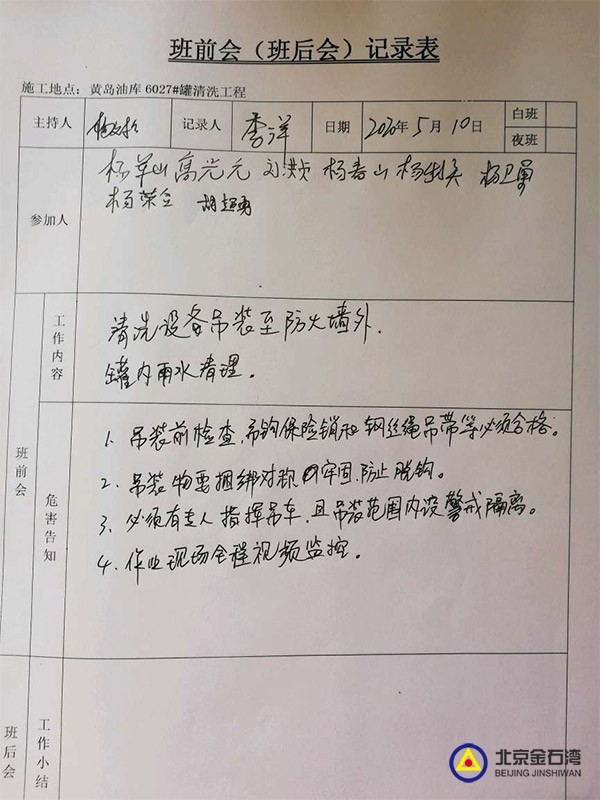 班前会（班后会）记录表
施工地点：黄岛油库 6027#罐清洗工程
主持人 记录人 李洋 日期 2020年5月10日 白班
夜班
参加人 杨草山 高光元 刘洪 杨春山 杨 杨卫勇
杨荣全 胡超勇
班前会
工作内容
清洗设备吊装至防火墙外.
罐内雨水清理。
危害告知
1. 吊装前检查,吊钩保险销和钢丝绳吊带等必须合格。
2. 吊装物要捆绑对称牢固,防止脱钩。
3. 必须有专人指挥吊车,且吊装范围内设警戒隔离。
4. 作业现场全程视频监控.
班后会
工作小结
北京金石湾
BEIJING JINSHIWAN